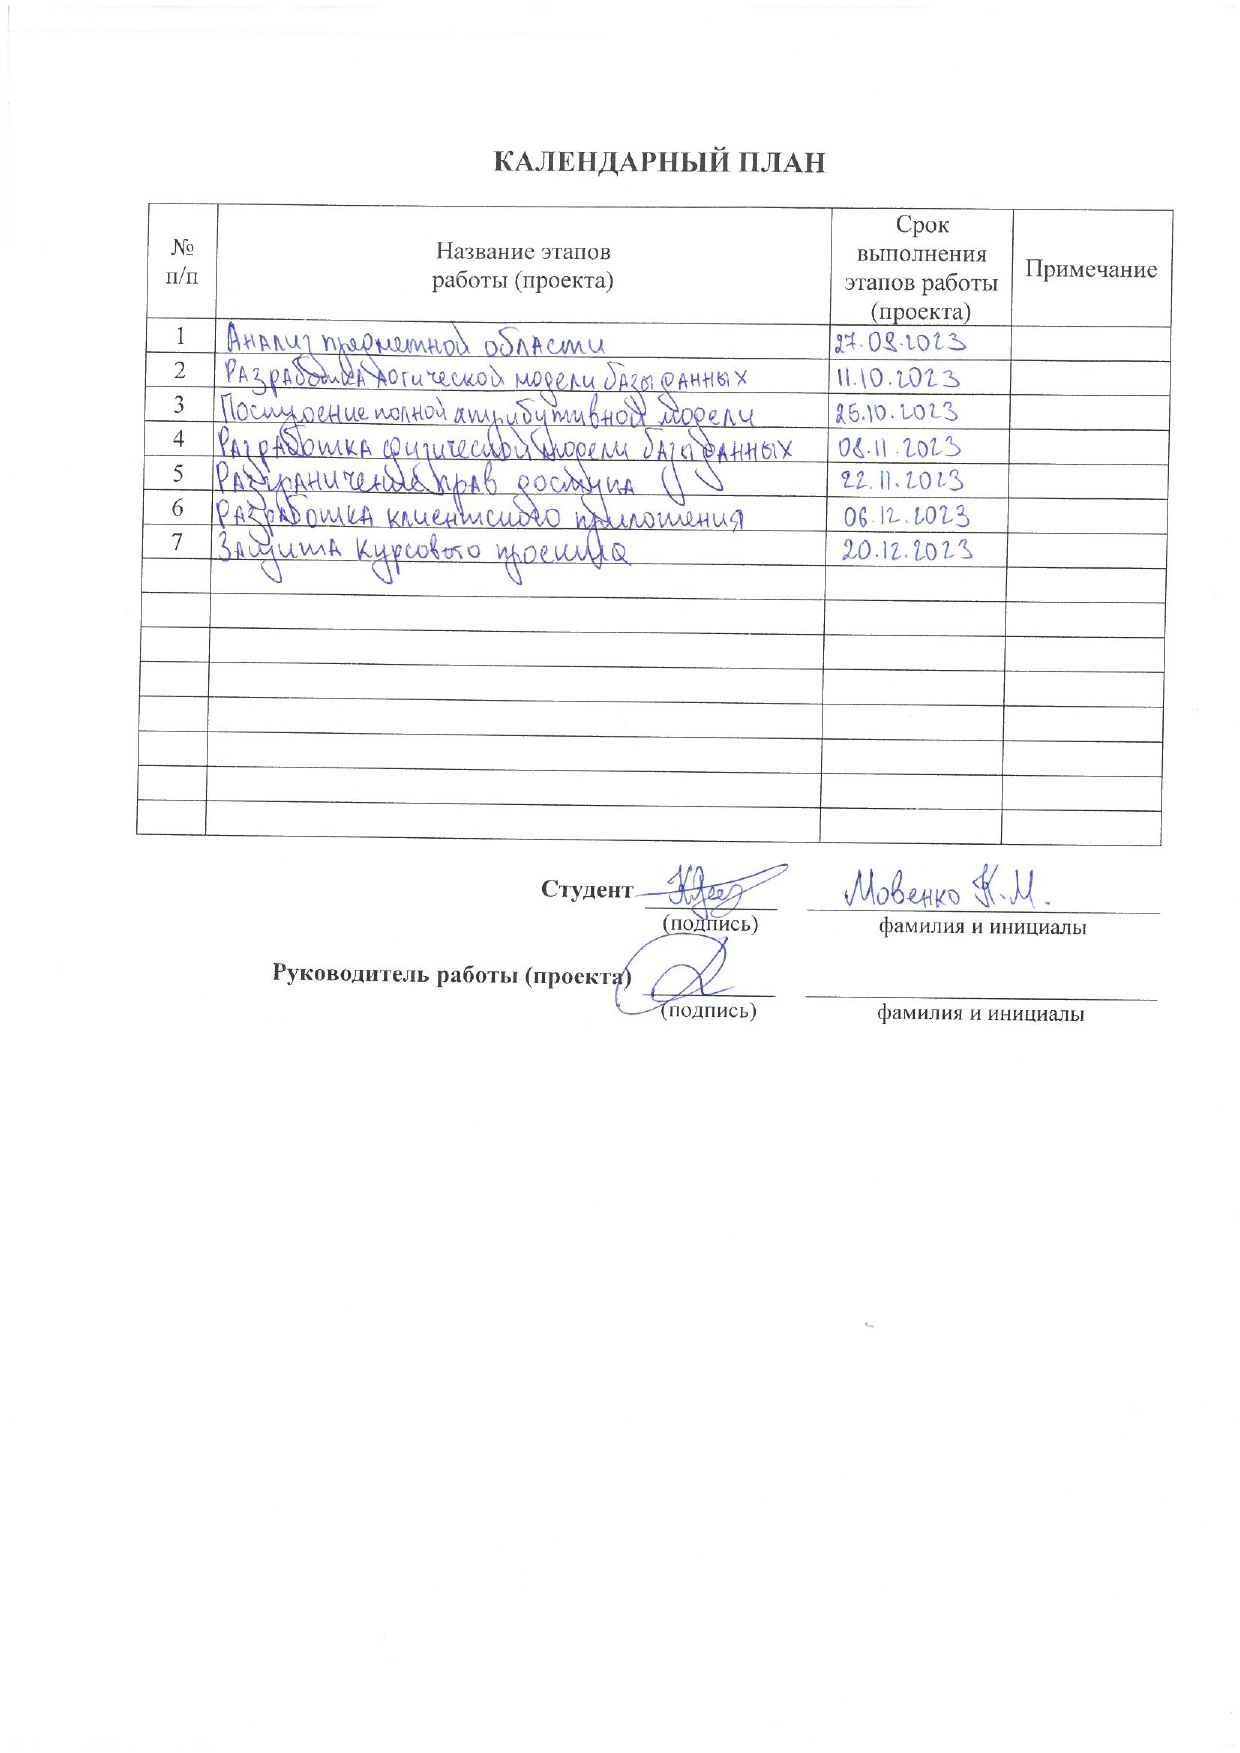 КАЛЕНДАРНЫЙ ПЛАН
№ п/п Название этапов работы (проекта) Срок выполнения этапов работы (проекта) Примечание
1 Анализ предметной области 27.09.2023
2 Разработка логической модели базы данных 11.10.2023
3 Построение полной атрибутивной модели 25.10.2023
4 Разработка физической модели базы данных 08.11.2023
5 Разграничение прав доступа 22.11.2023
6 Разработка клиентского приложения 06.12.2023
7 Защита курсового проекта 20.12.2023
Студент Мовенко К.М.
(подпись) фамилия и инициалы
Руководитель работы (проекта)
(подпись) фамилия и инициалы